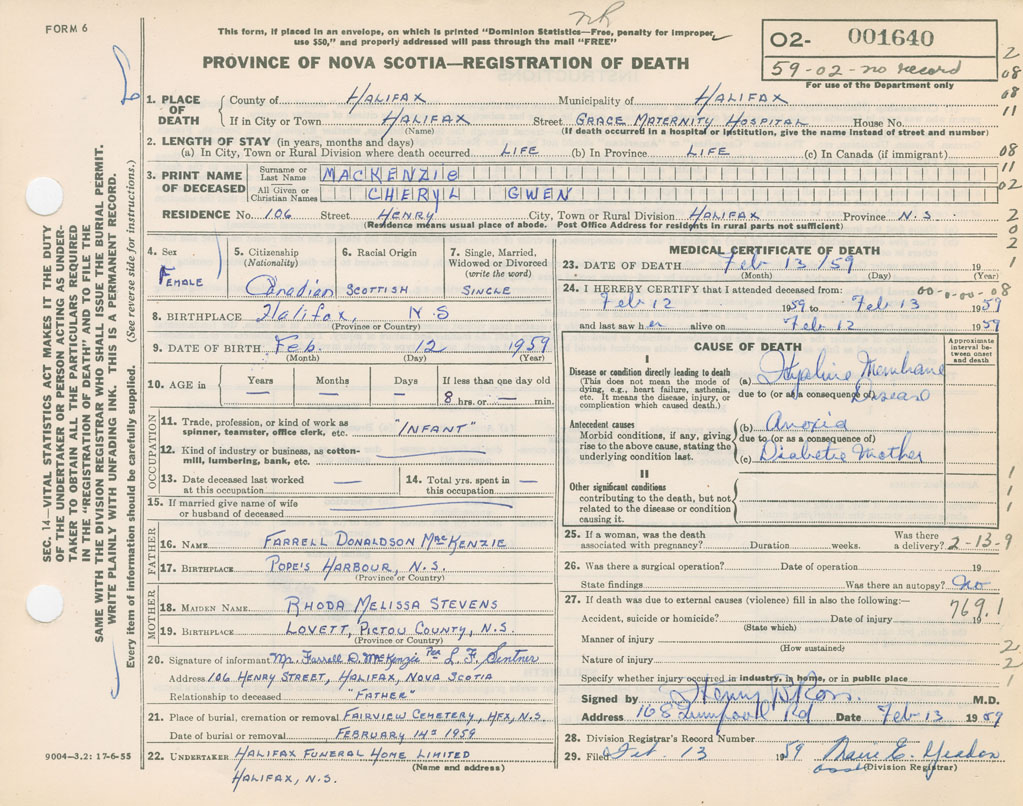 FORM 6
nR
This form, if placed in an envelope, on which is printed "Dominion Statistics—Free, penalty for improper
use $50," and properly addressed will pass through the mail "FREE"
PROVINCE OF NOVA SCOTIA—REGISTRATION OF DEATH
O2- 001640
59-02-no record
For use of the Department only
1. PLACE OF DEATH { County of HALIFAX Municipality of HALIFAX
If in City or Town HALIFAX Street GRACE MATERNITY HOSPITAL House No.
(Name) (If death occurred in a hospital or institution, give the name instead of street and number)
2. LENGTH OF STAY (in years, months and days)
(a) In City, Town or Rural Division where death occurred LIFE (b) In Province LIFE (c) In Canada (if immigrant)
3. PRINT NAME OF DECEASED { Surname or Last Name MACKENZIE
All Given or Christian Names CHERYL GWEN
RESIDENCE No. 106 Street HENRY City, Town or Rural Division HALIFAX Province N.S.
(Residence means usual place of abode. Post Office Address for residents in rural parts not sufficient)
4. Sex FEMALE
5. Citizenship (Nationality) Canadian
6. Racial Origin SCOTTISH
7. Single, Married, Widowed or Divorced (write the word) SINGLE
8. BIRTHPLACE Halifax, N.S
(Province or Country)
9. DATE OF BIRTH Feb. 12 1959
(Month) (Day) (Year)
10. AGE in { Years — Months — Days — If less than one day old
8 hrs. or — min.
OCCUPATION
11. Trade, profession, or kind of work as
spinner, teamster, office clerk, etc. "INFANT"
12. Kind of industry or business, as cotton-
mill, lumbering, bank, etc.
13. Date deceased last worked
at this occupation —
14. Total yrs. spent in
this occupation —
15. If married give name of wife
or husband of deceased
FATHER
16. NAME FARRELL DONALDSON MACKENZIE
17. BIRTHPLACE POPE'S HARBOUR, N.S.
(Province or Country)
MOTHER
18. MAIDEN NAME RHODA MELISSA STEVENS
19. BIRTHPLACE LOVETT, PICTOU COUNTY, N.S.
(Province or Country)
20. Signature of informant Mr. Farrell D. MacKenzie Per L. F. Sentner
Address 106 HENRY STREET, HALIFAX, NOVA SCOTIA
Relationship to deceased "FATHER"
21. Place of burial, cremation or removal FAIRVIEW CEMETERY, HFX, N.S.
Date of burial or removal FEBRUARY 14TH 1959
22. UNDERTAKER HALIFAX FUNERAL HOME LIMITED
(Name and address)
HALIFAX, N.S.
9004—3.2: 17-6-55
MEDICAL CERTIFICATE OF DEATH
23. DATE OF DEATH Feb 13/59 19
(Month) (Day) (Year)
24. I HEREBY CERTIFY that I attended deceased from: 00-0-00-08
Feb 12 1959 to Feb 13 1959
and last saw her alive on Feb 12 1959
CAUSE OF DEATH
Approximate interval be-tween onset and death
I
Disease or condition directly leading to death
(This does not mean the mode of
dying, e.g., heart failure, asthenia,
etc. It means the disease, injury, or
complication which caused death.)
(a) Hyaline Membrane
due to (or as a consequence of) Disease
Antecedent causes
Morbid conditions, if any, giving
rise to the above cause, stating the
underlying condition last.
(b) Anoxia
due to (or as a consequence of)
(c) Diabetic Mother
II
Other significant conditions
contributing to the death, but not
related to the disease or condition
causing it.
25. If a woman, was the death Was there
associated with pregnancy? Duration weeks. a delivery? 2-13-9
26. Was there a surgical operation? Date of operation 19
State findings Was there an autopsy? No
27. If death was due to external causes (violence) fill in also the following:— 769.1
Accident, suicide or homicide? Date of injury 19
(State which)
Manner of injury
(How sustained)
Nature of injury
Specify whether injury occurred in industry, in home, or in public place
Signed by Henry B Ross. M.D.
Address 168 Quinpool Rd Date Feb 13 1959
28. Division Registrar's Record Number
29. Filed Feb. 13 1959
(Division Registrar)
SEC. 14—VITAL STATISTICS ACT MAKES IT THE DUTY
OF THE UNDERTAKER OR PERSON ACTING AS UNDER-
TAKER TO OBTAIN ALL THE PARTICULARS REQUIRED
IN THE "REGISTRATION OF DEATH" AND TO FILE THE
SAME WITH THE DIVISION REGISTRAR WHO SHALL ISSUE THE BURIAL PERMIT.
WRITE PLAINLY WITH UNFADING INK. THIS IS A PERMANENT RECORD.
Every item of information should be carefully supplied. (See reverse side for instructions.)
2
08
08
11
08
11
02
2
0
2
1
1
1
1
2
2
1